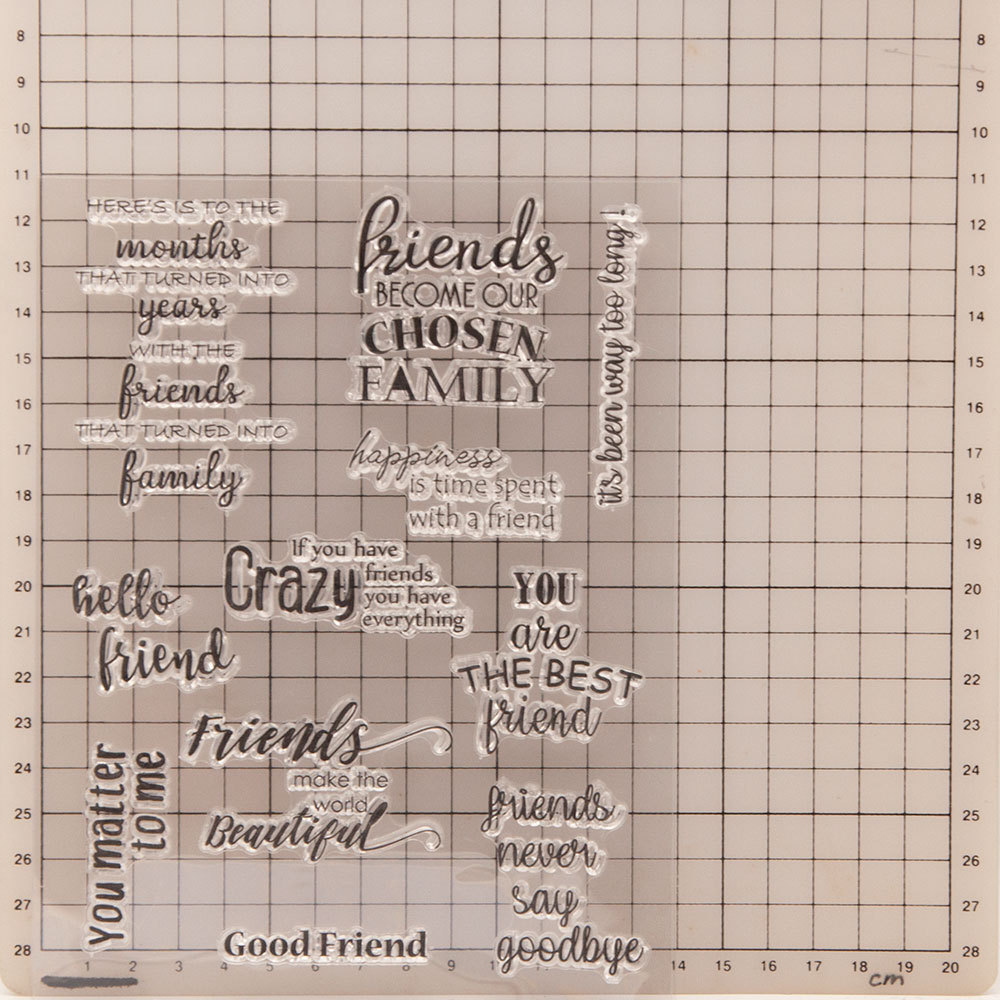 HERE'S IS TO THE
months
THAT TURNED INTO
years
WITH THE
friends
THAT TURNED INTO
family
friends
BECOME OUR
CHOSEN
FAMILY
it's been way too long!
happiness
is time spent
with a friend
If you have
Crazy friends
you have
everything
hello
friend
YOU
are
THE BEST
friend
Friends
make the
world
Beautiful
You matter
to me
friends
never
say
goodbye
Good Friend
8
9
10
11
12
13
14
15
16
17
18
19
20
21
22
23
24
25
26
27
28
8
9
10
11
12
13
14
15
16
17
18
19
20
21
22
23
24
25
26
27
28
1 2 3 4 5 6 7 8 9 10 14 15 16 17 18 19 20
cm